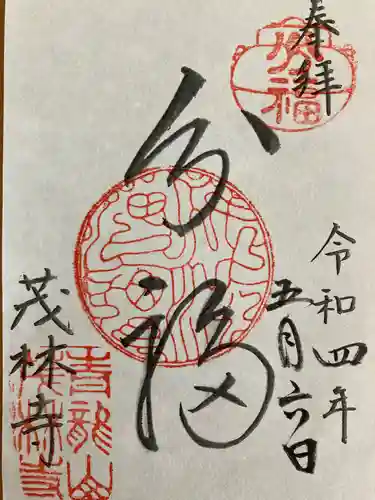 奉拝
分福
令和四年
五月六日
茂林寺
分福
青龍山
茂林寺